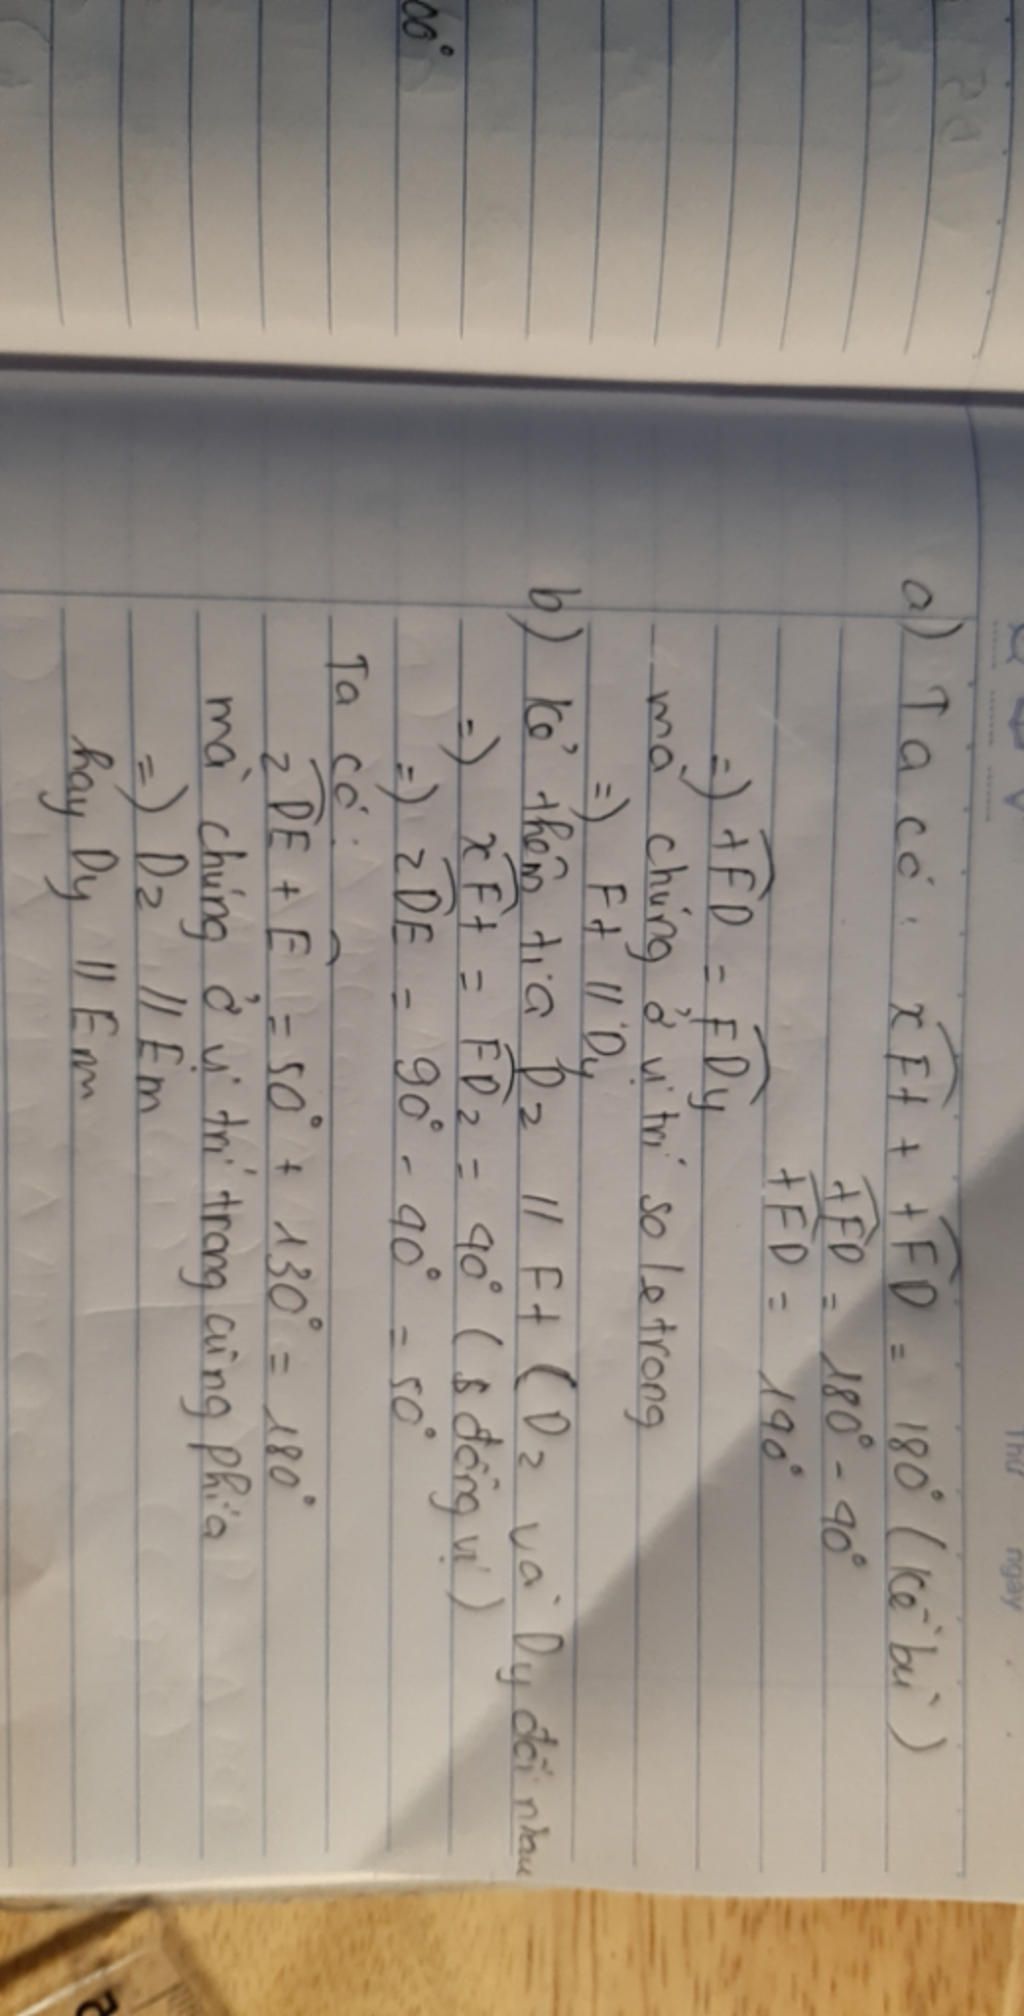 Thứ ngày
a) Ta có: xFt + tFD = 180° (kề bù)
tFD = 180° - 40°
tFD = 140°
=) tFD = FDy
mà chúng ở vị trí so le trong
=) Ft // Dy
b) Kẻ thêm tia Dz // Ft (Dz và Dy đối nhau
=) xFt = FDz = 40° (đồng vị)
=) zDE = 90° - 40° = 50°
Ta có:
zDE + E = 50° + 130° = 180°
mà chúng ở vị trí trong cùng phía
=) Dz // Em
hay Dy // Em
00°